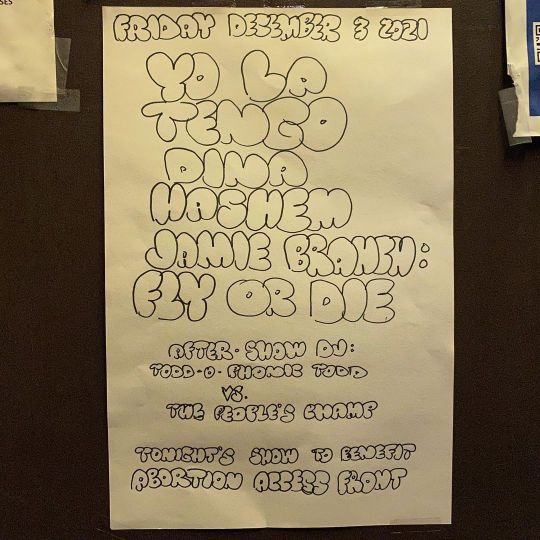 FRIDAY DECEMBER 3 2021
YO LA
TENGO
DINA
HASHEM
JAMIE BRANCH:
FLY OR DIE
AFTER-SHOW DJ:
TODD-O-PHONIC TODD
VS.
THE PEOPLE'S CHAMP
TONIGHT'S SHOW TO BENEFIT
ABORTION ACCESS FRONT